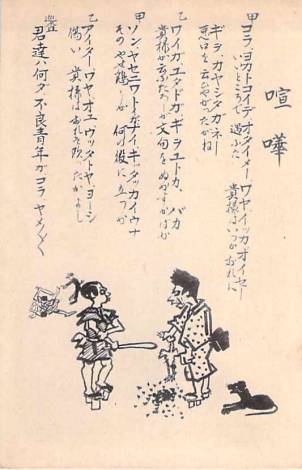 喧嘩
甲 コラ、ヨカトコイデオダイメー ワヤイッカオイセー
いいところで 遊ぶた 貴様はいつかおれに
ギヲカヤシタガネー
悪口を云ひやがったがね
乙 ワイガ、ユタドガギヲユドカ、バカ
貴様が云ふたのが文句をぬかすかばか
甲 ソンヤセニワトイガ、ナイ、ギッタッカイウナ
そのやせ鶏が 何の役に立つか
乙 アイター ワヤ、オエ、ウッタトヤヨーシ
痛い 貴様はおれを
警 君達ハ何ダ不良青年ガコラヤメ〱